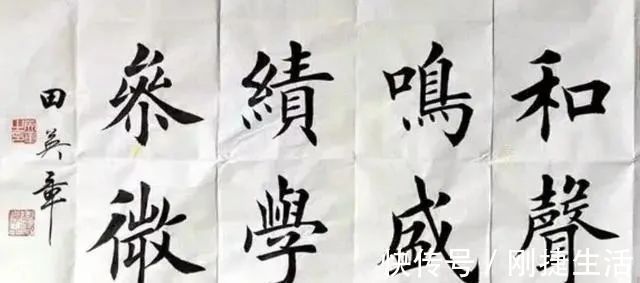 和聲
鳴
績學
參微
田英章
快传号 / 刚捷生活